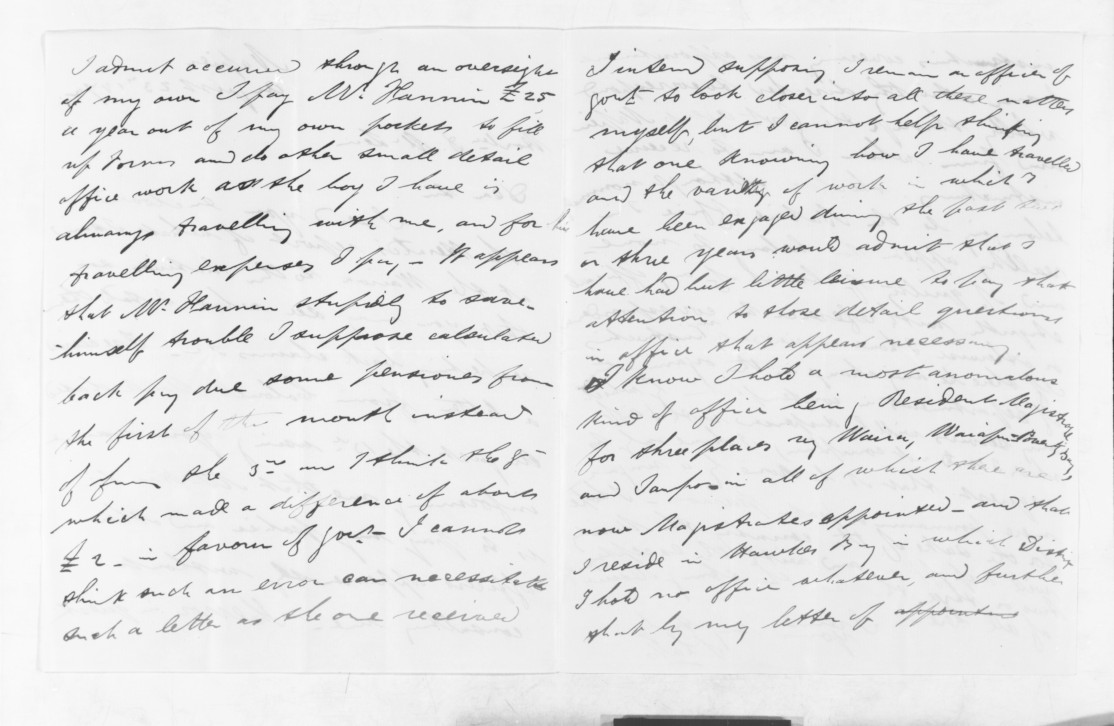 I admit occurred through an oversight
of my own I pay Mr. Hannin £25
a year out of my own pockets to fill
up Forms and do other small detail
office work as the boy I have is
always travelling with me, and for his
travelling expenses I pay – It appears
that Mr. Hannin stupidly to save
himself trouble I suppose calculated
back pay due some pensioners from
the first of the month instead
of from the 5th or I think the 8th
which made a difference of about
£2 – in favour of govt – I cannot
think such an error can necessitate
such a letter as the one received
I intend supposing I remain an officer of
govt to look closer into all these matters
myself, but I cannot help thinking
that one knowing how I have travelled
and the variety of work in which I
have been engaged during the past two
or three years would admit that I
have had but little leisure to pay that
attention to those detail questions
in office that appears necessary.
I know I hold a most anomalous
kind of office being Resident Magistrate
for three places viz Wairoa, Waiapu
and Taupo in all of which there are
now Magistrates appointed – and that
I reside in Hawkes Bay in which District
I hold no office whatever, and further
that by my letter of